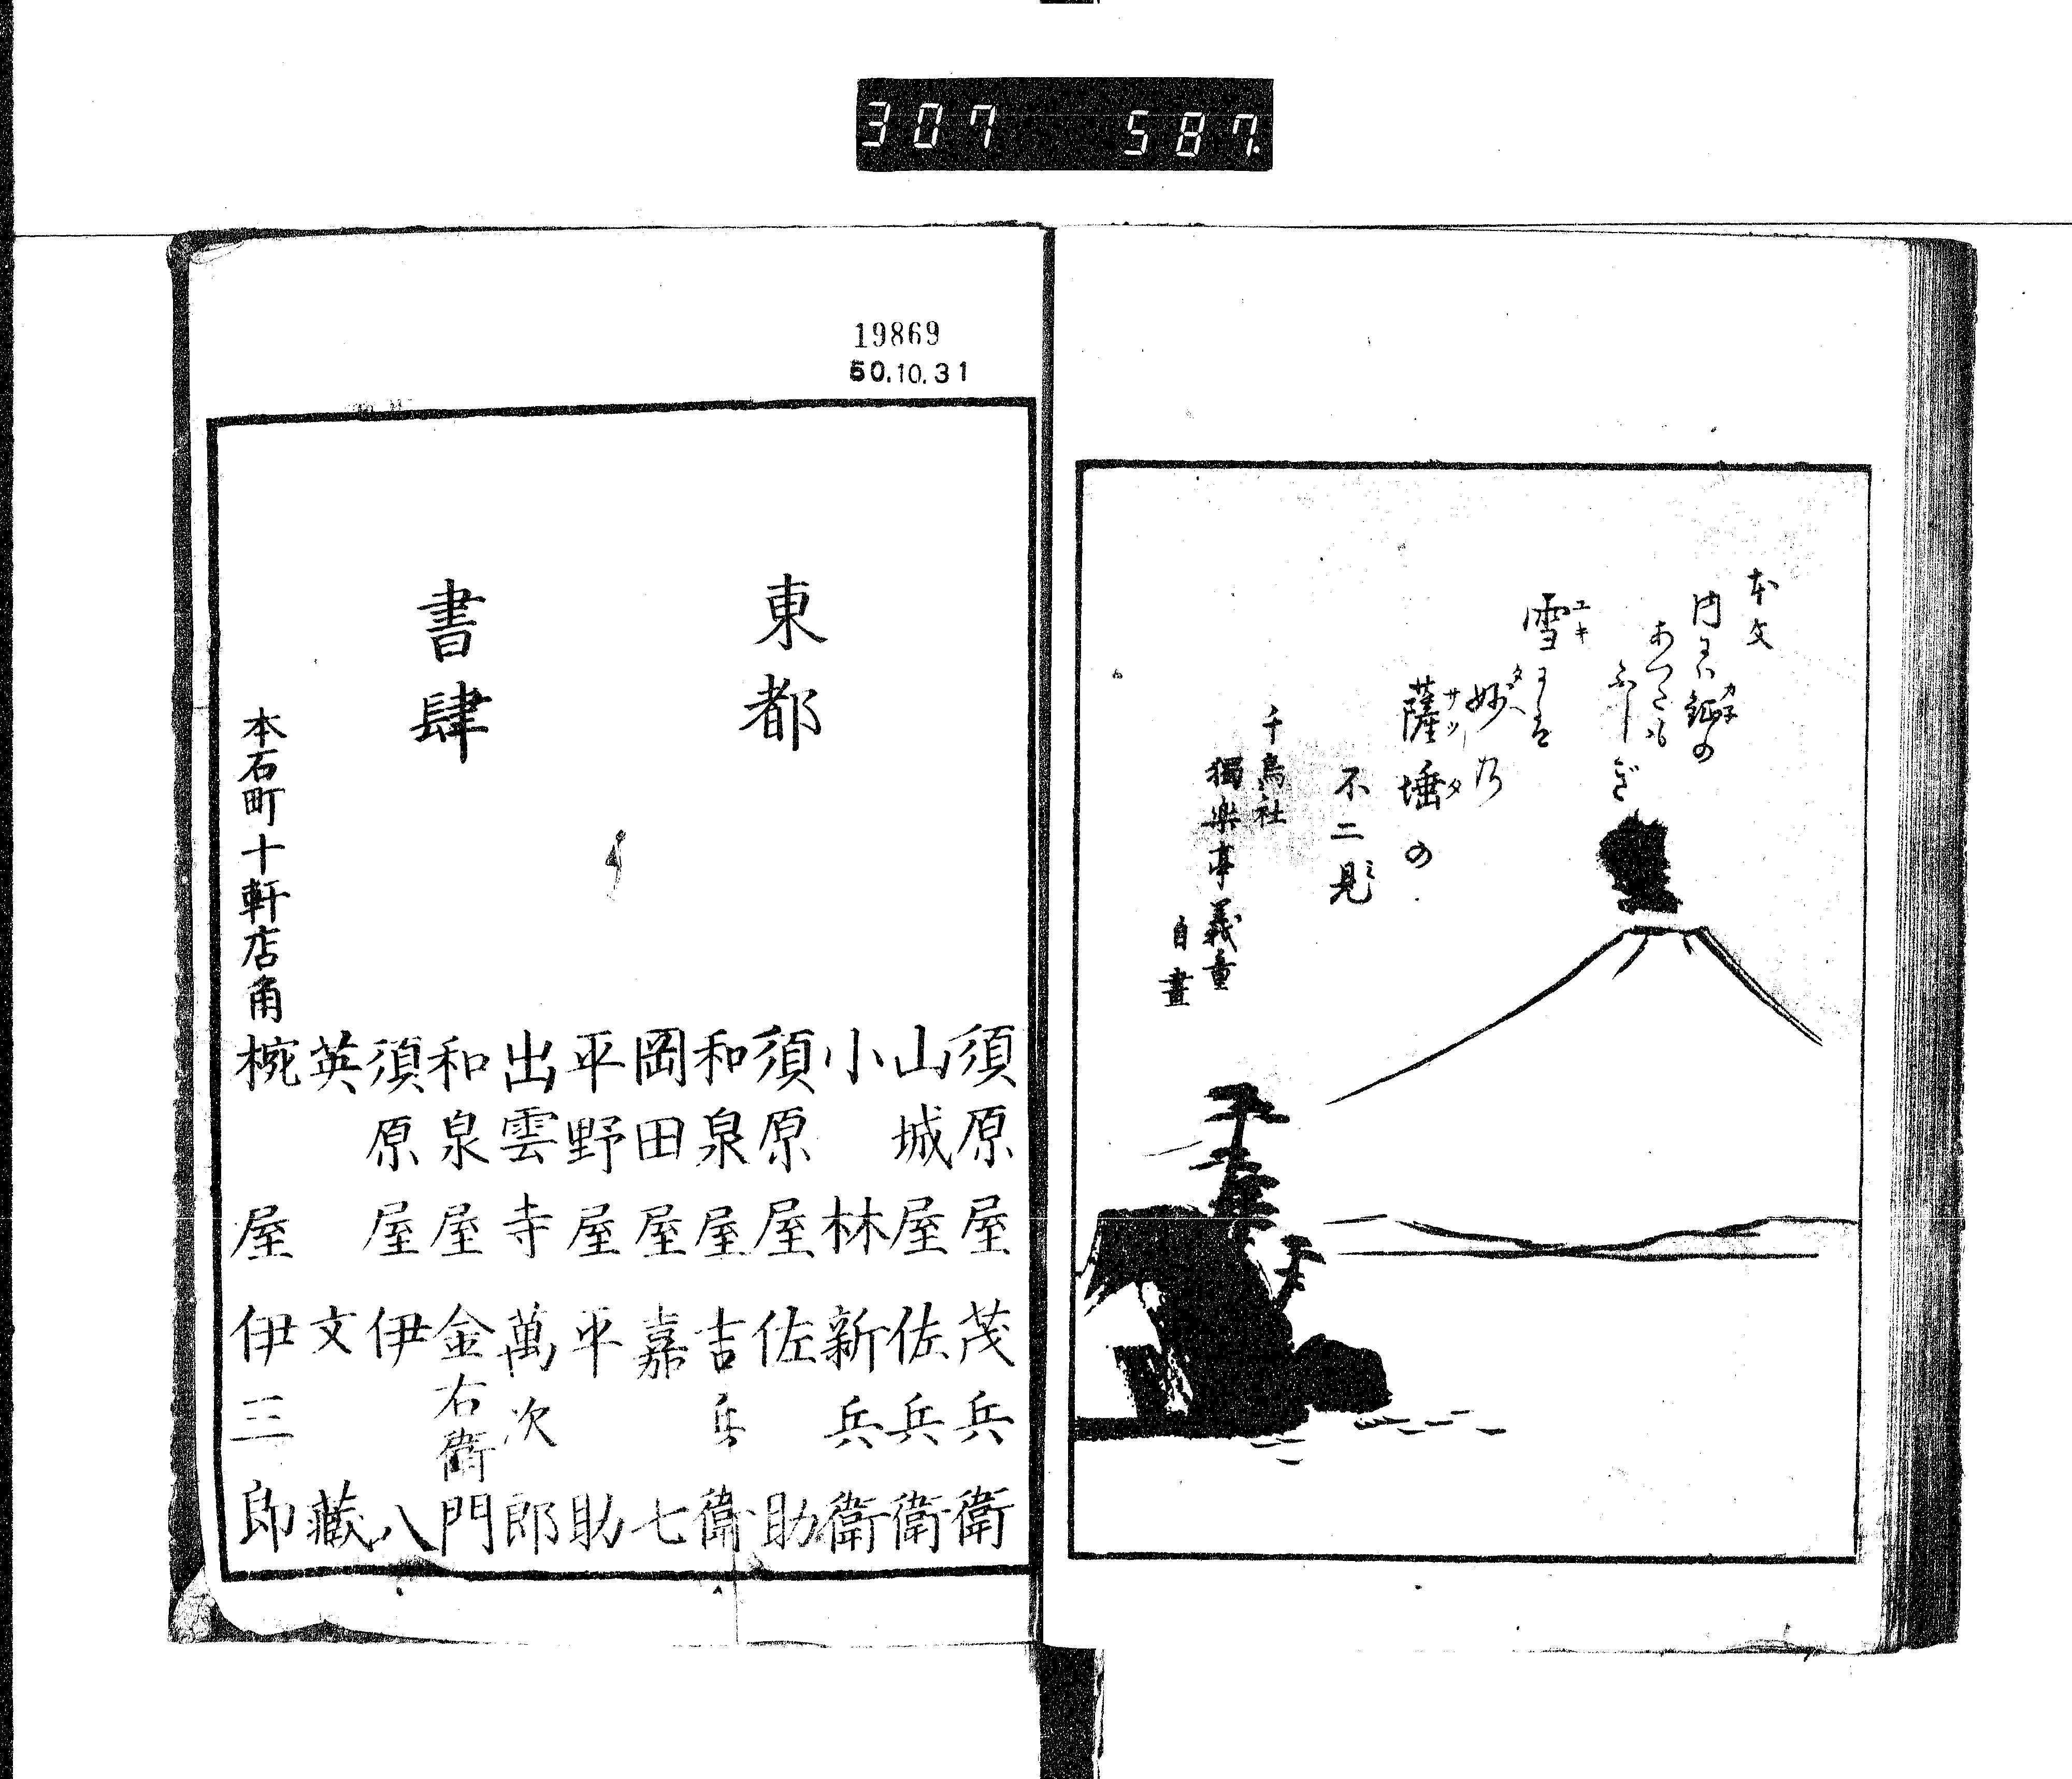 307 587.
本文
雪
ユキ
妙乃
タヘ
薩埵の
サツタ
不二見
ミ
千鳥社
獨樂亭義童
自畫
19869
50.10.31
東都
書肆
須原屋茂兵衛
山城屋佐兵衛
小林新兵衛
須原屋佐助
和泉屋吉兵衛
岡田屋嘉七
平野屋平助
出雲寺萬次郎
和泉屋金右衛門
須原屋伊八
英文藏
本石町十軒店角
椀屋伊三郎